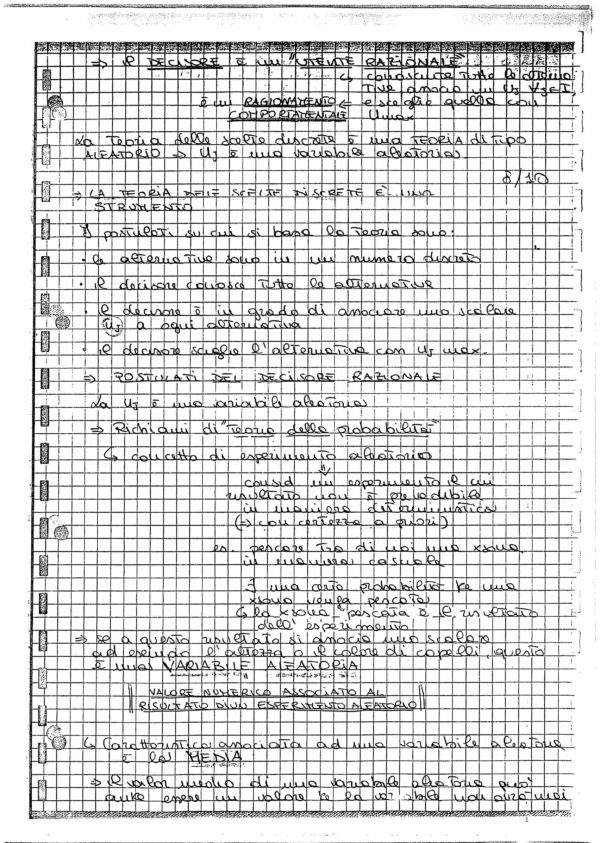 ⇒ il DECISORE è un "UTENTE RAZIONALE"
↳ conosciute tutte le alterna
tive associa un Uj ∀j∈I,
è un RAGIONAMENTO ← e sceglie quella con
COMPORTAMENTALE Umax
La Teoria delle scelte discrete è una TEORIA di tipo
ALEATORIO ⇒ Uj è una variabile aleatoria
8/10
⇒ LA TEORIA DELLE SCELTE DISCRETE È UNO
STRUMENTO
I postulati su cui si basa la teoria sono:
• le alternative sono in un numero discreto
• il decisore conosce tutte le alternative
• il decisore è in grado di associare uno scalare
Uj a ogni alternativa
• il decisore sceglie l'alternativa con Uj max.
⇒ POSTULATI DEL DECISORE RAZIONALE
La Uj è una variabile aleatoria
⇒ Richiami di "Teoria della probabilità"
↳ concetto di esperimento aleatorio
⇓
consid un esperimento il cui
risultato non è prevedibile
in maniera deterministica
(⇒ con certezza a priori)
es. pescare tra di noi una xsona
in maniera casuale
∃ una certa probabilità ke una
xsona venga pescata
↳ la xsona pescata è il risultato
dell'esperimento
⇒ se a questo risultato si associa uno scalare
ad esempio l'altezza o il colore di capelli, questo
è una VARIABILE ALEATORIA
VALORE NUMERICO ASSOCIATO AL
RISULTATO D'UN ESPERIMENTO ALEATORIO
↳ Caratteristica associata ad una variabile aleatoria
è la MEDIA
⇒ il valor medio di una variabile aleatoria può
anke essere un valore ke la var stabile non avrà mai